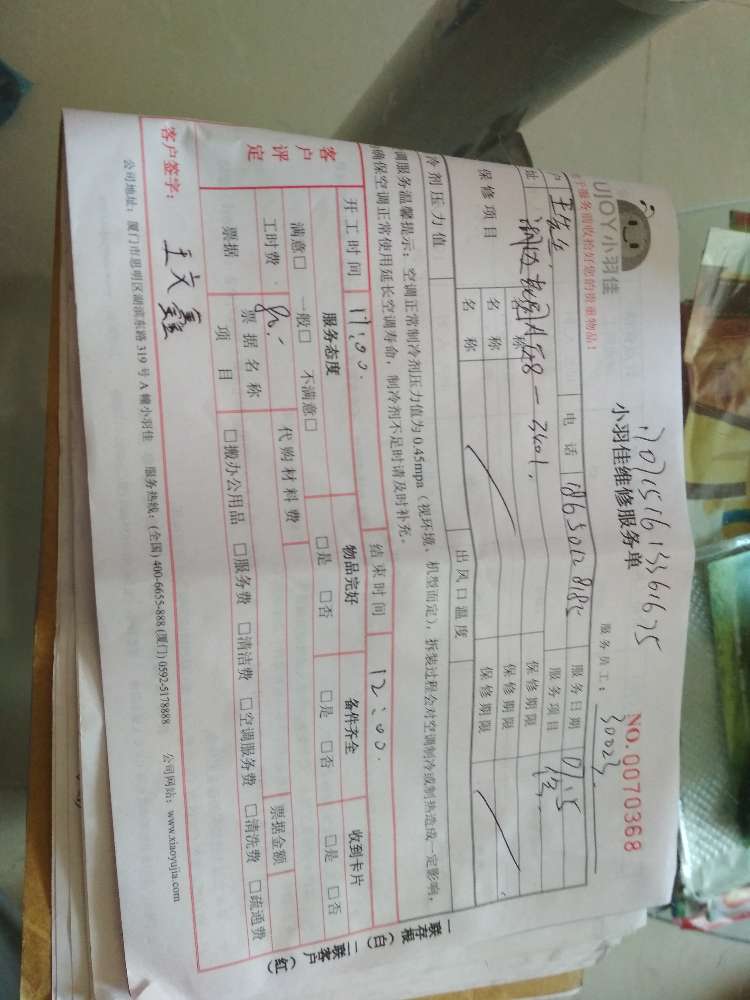 UJOY小羽佳
小羽佳维修服务单
NO.0070368
服务前收拾好您的贵重物品！
服务员工：
户 王先生 电 话 服务日期 07.15
址 服务项目
保修项目 名 称 保修期限
名 称 保修期限
名 称 保修期限
冷剂压力值 出风口温度
调服务温馨提示：空调正常制冷剂压力值为0.45mpa（视环境、机型而定），拆装过程会对空调制冷或制热造成一定影响，
确保空调正常使用延长空调寿命，制冷剂不足时请及时补充。
开工时间 结束时间 12:00.
客户评定 服务态度 物品完好 备件齐全 收到卡片
满意□ 一般□ 不满意□ □是 □否 □是 □否 □是 □否
工时费 代购材料费 票据金额
票据 票据名称
项 目 □搬办公用品 □服务费 □清洁费 □空调服务费 □清洗费 □疏通费
客户签字： 王文鑫
公司地址：厦门市思明区湖滨东路319号A幢小羽佳 服务热线：(全国) 400-6655-888 (厦门) 0592-5178888 公司网站：www.xiaoyujia.com
一联存根（白）二联客户（红）